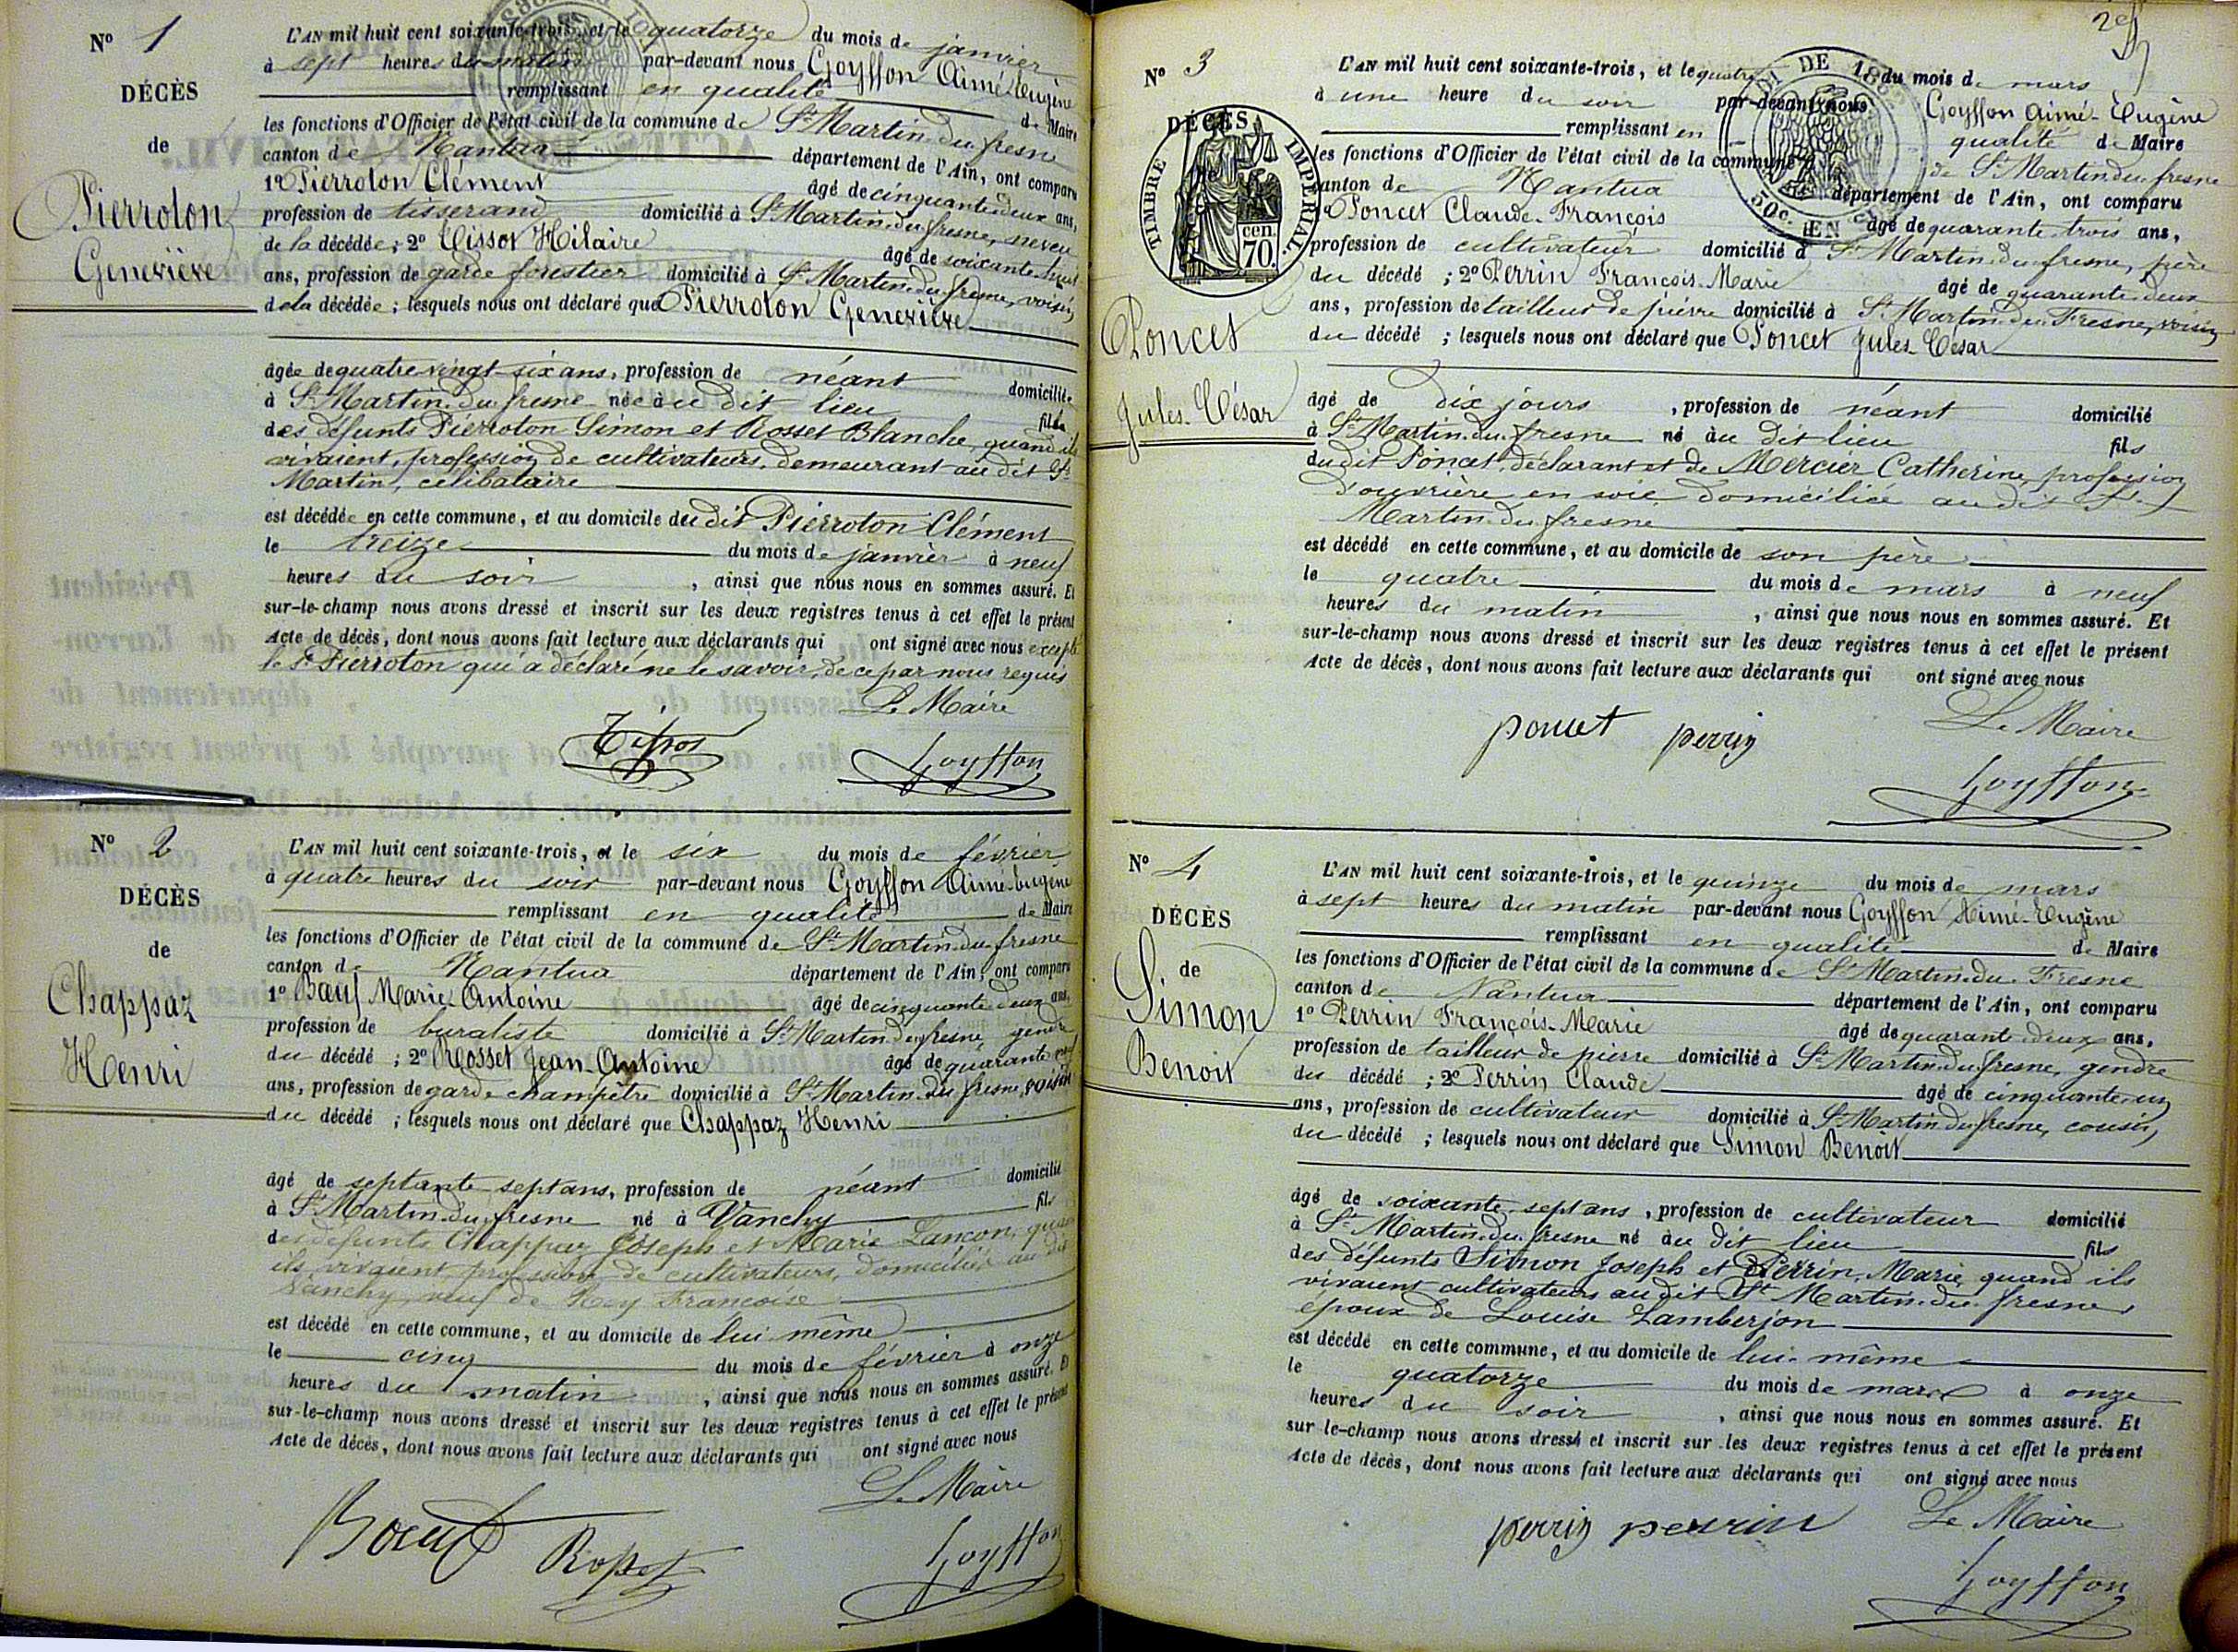 N° 1
DÉCÈS
de
Pierroton
Geneviève
L'AN mil huit cent soixante-trois, et le quatorze du mois de janvier
à sept heures du matin par-devant nous Goyffon Aimé-Eugène
remplissant en qualité de Maire
les fonctions d'Officier de l'état civil de la commune de St Martin-du-fresne
canton de Nantua département de l'Ain, ont comparu
1° Pierroton Clément âgé de cinquante-deux ans,
profession de tisserand domicilié à St Martin-du-fresne, neveu
de la décédée ; 2° Tissot Hilaire âgé de soixante-huit
ans, profession de garde forestier domicilié à St Martin-du-fresne, voisin
de la décédée ; lesquels nous ont déclaré que Pierroton Geneviève
âgée de quatre vingt-six ans, profession de néant domiciliée
à St Martin-du-fresne née au dit lieu fille
des défunts Pierroton Simon et Rosset Blanche, quand ils
vivaient, profession de cultivateurs, demeurant au dit St
Martin, célibataire
est décédée en cette commune, et au domicile du dit Pierroton Clément
le treize du mois de janvier à neuf
heures du soir , ainsi que nous nous en sommes assuré. Et
sur-le-champ nous avons dressé et inscrit sur les deux registres tenus à cet effet le présent
Acte de décès, dont nous avons fait lecture aux déclarants qui ont signé avec nous excepté
le St Pierroton qui a déclaré ne le savoir, de ce par nous requis
Le Maire
Tissot Goyffon
N° 2
DÉCÈS
de
Chappaz
Henri
L'AN mil huit cent soixante-trois, et le six du mois de février
à quatre heures du soir par-devant nous Goyffon Aimé-Eugène
remplissant en qualité de Maire
les fonctions d'Officier de l'état civil de la commune de St Martin-du-fresne
canton de Nantua département de l'Ain, ont comparu
1° Bœuf Marie-Antoine âgé de cinquante-deux ans,
profession de buraliste domicilié à St Martin-du-fresne, gendre
du décédé ; 2° Rosset Jean-Antoine âgé de quarante
ans, profession de garde champêtre domicilié à St Martin-du-fresne, voisin
du décédé ; lesquels nous ont déclaré que Chappaz Henri
âgé de septante-sept ans, profession de néant domicilié
à St Martin-du-fresne né à Vanchy fils
des défunts Chappaz Joseph et Marie Lançon, quand
ils vivaient, profession de cultivateurs, domiciliés au dit
Vanchy, veuf de Rey Françoise
est décédé en cette commune, et au domicile de lui-même
le cinq du mois de février à onze
heures du matin , ainsi que nous nous en sommes assuré. Et
sur-le-champ nous avons dressé et inscrit sur les deux registres tenus à cet effet le présent
Acte de décès, dont nous avons fait lecture aux déclarants qui ont signé avec nous
Le Maire
Boeuf Rosset Goyffon
N° 3
DÉCÈS
TIMBRE IMPÉRIAL
70 cen.
Poncet
Jules-César
L'AN mil huit cent soixante-trois, et le quatre du mois de mars
à une heure du soir par-devant nous Goyffon Aimé-Eugène
remplissant en qualité de Maire
les fonctions d'Officier de l'état civil de la commune de St Martin-du-fresne
canton de Nantua département de l'Ain, ont comparu
1° Poncet Claude-François âgé de quarante-trois ans,
profession de cultivateur domicilié à St Martin-du-fresne, père
du décédé ; 2° Perrin François-Marie âgé de quarante-deux
ans, profession de tailleur de pierre domicilié à St Martin-du-Fresne, voisin
du décédé ; lesquels nous ont déclaré que Poncet Jules-César
âgé de dix jours , profession de néant domicilié
à St Martin-du-fresne né au dit lieu fils
du dit Poncet, déclarant et de Mercier Catherine, profession
d'ouvrière en soie domiciliée au dit St
Martin-du-fresne
est décédé en cette commune, et au domicile de son père
le quatre du mois de mars à neuf
heures du matin , ainsi que nous nous en sommes assuré. Et
sur-le-champ nous avons dressé et inscrit sur les deux registres tenus à cet effet le présent
Acte de décès, dont nous avons fait lecture aux déclarants qui ont signé avec nous
Le Maire
poncet perrin Goyffon
N° 4
DÉCÈS
de
Simon
Benoit
L'AN mil huit cent soixante-trois, et le quinze du mois de mars
à sept heures du matin par-devant nous Goyffon Aimé-Eugène
remplissant en qualité de Maire
les fonctions d'Officier de l'état civil de la commune de St Martin-du-Fresne
canton de Nantua département de l'Ain, ont comparu
1° Perrin François-Marie âgé de quarante-deux ans,
profession de tailleur de pierre domicilié à St Martin-du-fresne, gendre
du décédé ; 2° Perrin Claude âgé de cinquante-un
ans, profession de cultivateur domicilié à St Martin-du-fresne, cousin
du décédé ; lesquels nous ont déclaré que Simon Benoit
âgé de soixante-sept ans , profession de cultivateur domicilié
à St Martin-du-fresne né au dit lieu fils
des défunts Simon Joseph et Perrin Marie, quand ils
vivaient cultivateurs au dit St Martin-du-fresne
époux de Louise Lamberjon
est décédé en cette commune, et au domicile de lui-même
le quatorze du mois de mars à onze
heures du soir , ainsi que nous nous en sommes assuré. Et
sur-le-champ nous avons dressé et inscrit sur les deux registres tenus à cet effet le présent
Acte de décès, dont nous avons fait lecture aux déclarants qui ont signé avec nous
Le Maire
perrin perrin Goyffon